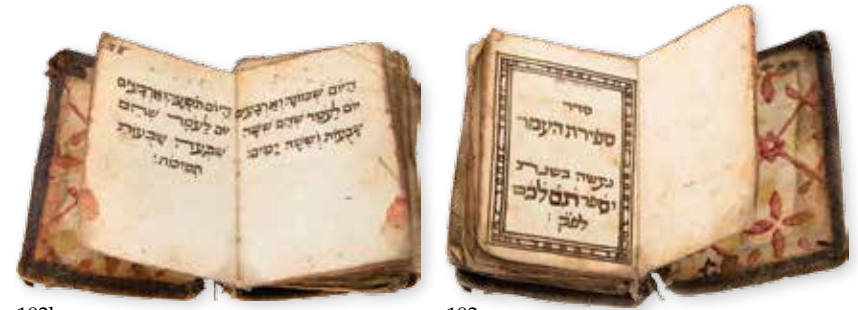 היום שמונה וארבעים
יום לעמר שהם ששה
שבעות וששה ימים:
היום תשעה וארבעים
יום לעמר שהם
שבעה שבעות
תמימות:
סדר
ספירת העמר
נעשה בשנת
וספרתם לכם
לפק :